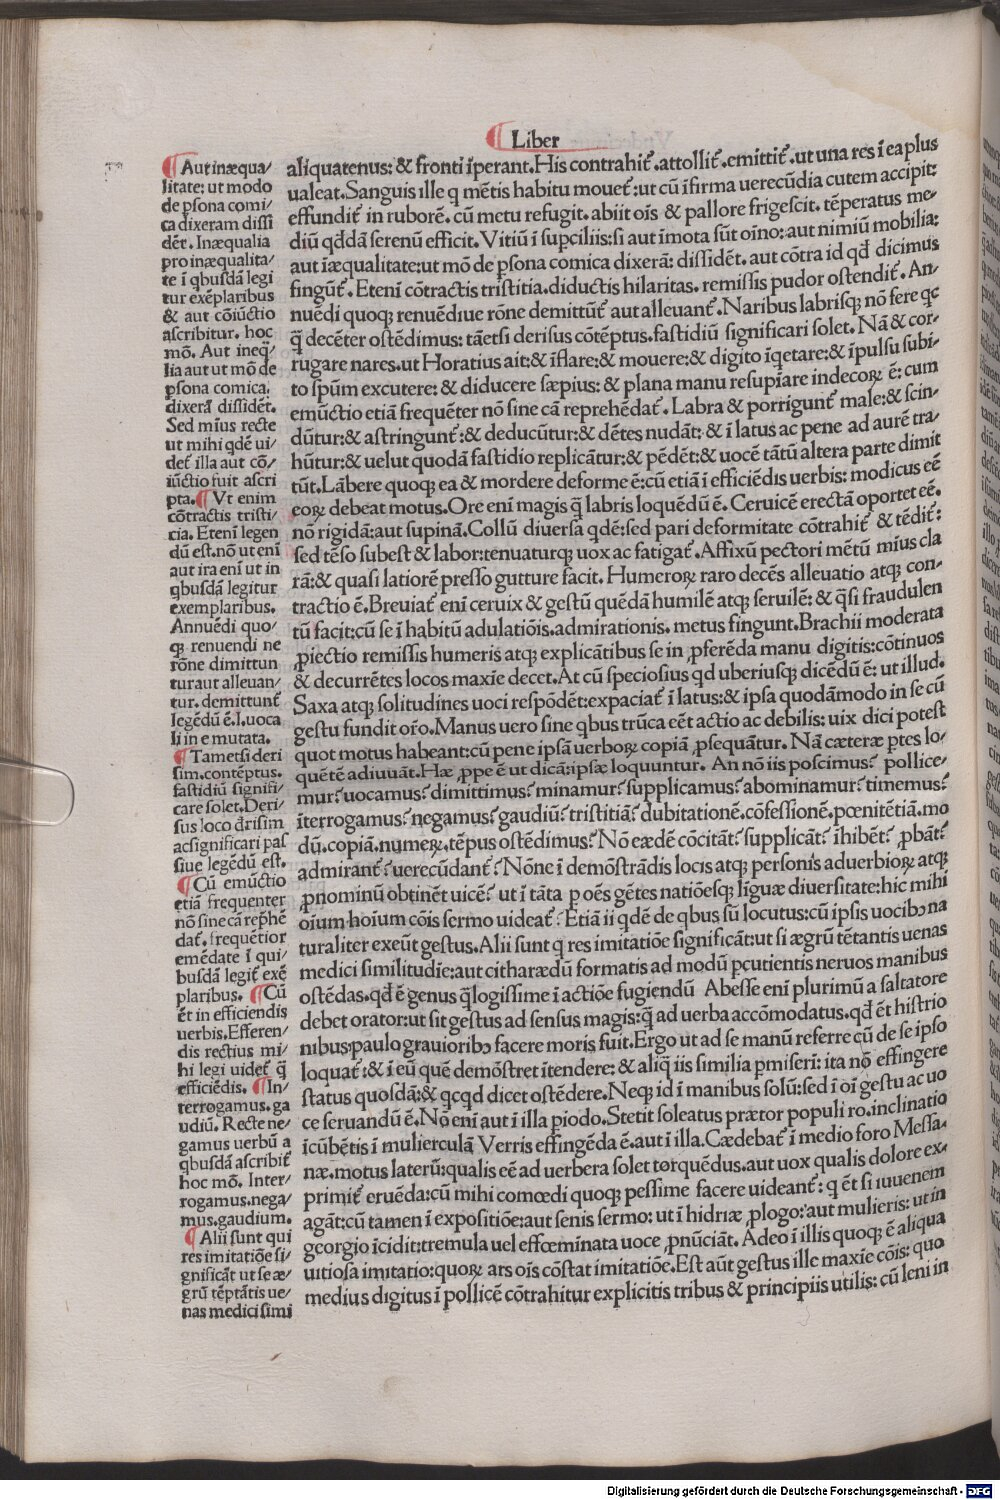 ¶ Liber
¶ Aut inæqua/
litate: ut modo
de p̱sona comi/
ca dixeram dissi
dēt. Inæqualia
pro inæqualita/
te ī qbusdā legi
tur exēplaribus
& aut cōiūctio
ascribitur. hoc
mō. Aut ineq̄/
lia aut ut mō de
p̱sona comica.
dixerā dissidēt.
Sed mīus recte
ut mihi qdē ui/
det᷑ illa aut cō/
iūctio fuit ascri
pta. ¶ Vt enim
cōtractis tristi/
cia. Etenī legen
dū est. nō ut enī
aut ira enī ut in
qbusdā legitur
exemplaribus.
Annuēdi quo/
qꝫ renuendi ne
rōne dimittun
tur aut alleuan/
tur. demittunt᷑
legēdū ē. I. uoca
li in e mutata.
¶ Tametsi deri
sim. contēptus.
fastidiū signifi/
care solet. Deri/
sus loco dr̄isim
ac significari pas
siue legēdū est.
¶ Cū emūctio
etiā frequenter
nō sine cā rep̱hē
dat᷑. frequētior
emēdate ī qui/
busdā legit᷑ exē
plaribus. ¶ Cū
ēt in efficiendis
uerbis. Efferen/
dis rectius mi/
hi legi uidet᷑ q̄
efficiēdis. ¶ In/
terrogamus. ga
udiū. Recte ne/
gamus uerbū a
qbusdā ascribit᷑
hoc mō. Inter/
rogamus. nega/
mus. gaudium.
¶ Alii sunt qui
res imitatiōe si/
gnificāt ut se æ/
grū tēptātis ue/
nas medici simi
aliquatenus: & fronti īperant. His contrahit᷑. attollit᷑. emittit᷑. ut una res ī ea plus
ualeat. Sanguis ille q mētis habitu mouet᷑: ut cū īfirma uerecūdia cutem accipit:
effundit᷑ in ruborē. cū metu refugit. abiit oīs & pallore frigescit. tēperatus me/
diū qd̄dā serenū efficit. Vitiū ī supciliis: si aut īmota sūt oīno: aut nimiū mobilia:
aut īæqualitate: ut mō de p̱sona comica dixerā: dissidēt. aut cōtra id qd̄ dicimus
fingūt᷑. Etenī cōtractis tristitia. diductis hilaritas. remissis pudor ostendit᷑. An/
nuēdi quoqꝫ renuēdiue rōne demittūt᷑ aut alleuant᷑. Naribus labrisqꝫ nō fere qc
q̄ decēter ostēdimus: tāetsi derisus cōtēptus. fastidiū significari solet. Nā & cor/
rugare nares. ut Horatius ait: & īflare: & mouere: & digito īqetare: & īpulsu subi/
to sp̄um excutere: & diducere sæpius: & plana manu resupīare indecoꝝ ē: cum
emūctio etiā frequēter nō sine cā reprehēdat᷑. Labra & porrigunt᷑ male: & scin/
dūtur: & astringunt᷑: & deducūtur: & dētes nudāt: & ī latus ac pene ad aurē tra/
hūtur: & uelut quodā fastidio replicātur: & pēdēt: & uocē tātū altera parte dimit
tūt. Lābere quoqꝫ ea & mordere deforme ē: cū etiā ī efficiēdis uerbis: modicus eē
eoꝝ debeat motus. Ore enī magis q̄ labris loquēdū ē. Ceruicē erectā oportet eē.
nō rigidā: aut supinā. Collū diuersa qdē: sed pari deformitate cōtrahit᷑ & tēdit᷑:
sed tēso subest & labor: tenuaturqꝫ uox ac fatigat᷑. Affixū pectori mētū mīus cla
rā: & quasi latiorē presso gutture facit. Humeroꝝ raro decēs alleuatio atqꝫ con/
tractio ē. Breuiat᷑ enī ceruix & gestū quēdā humilē atqꝫ seruilē: & q̄si fraudulen
tū facit: cū se ī habitū adulatiōis. admirationis. metus fingunt. Brachii moderata
ꝓiectio remissis humeris atqꝫ explicātibus se in ꝓferēda manu digitis: cōtinuos
& decurrētes locos maxīe decet. At cū speciosius qd uberiusqꝫ dicēdū ē: ut illud.
Saxa atqꝫ solitudines uoci respōdēt: expaciat᷑ ī latus: & ipsa quodāmodo in se cū
gestu fundit or̄o. Manus uero sine qbus trūca eēt actio ac debilis: uix dici potest
quot motus habeant: cū pene ipsā uerboꝝ copiā ꝓsequātur. Nā cæteræ p̱tes lo/
quētē adiuuāt. Hæ ꝓpe ē ut dicā: ipsæ loquuntur. An nō iis poscimus? pollice/
mur? uocamus? dimittimus? minamur? supplicamus? abominamur? timemus?
īterrogamus? negamus? gaudiū? tristitiā? dubitationē. cōfessionē. pœnitētiā. mo
dū. copiā. numeꝝ. tēpus ostēdimus? Nō eædē cōcitāt? supplicāt? īhibēt? ꝓbāt?
admirant᷑? uerecūdant᷑? Nōne ī demōstrādis locis atqꝫ personis aduerbioꝝ atqꝫ
ꝓnominū obtinēt uicē? ut ī tāta p̱ oēs gētes natiōesqꝫ līguæ diuersitate: hic mihi
oīum hoīum cōis sermo uideat᷑? Etiā ii qdē de qbus sū locutus: cū ipsis uocibꝰ na
turaliter exeūt gestus. Alii sunt q res imitatiōe significāt: ut si ægrū tētantis uenas
medici similitudīe: aut citharædū formatis ad modū p̱cutientis neruos manibus
ostēdas. qd̄ ē genus q̄ logissime ī actiōe fugiendū Abesse enī plurimū a saltatore
debet orator: ut sit gestus ad sensus magis: q̄ ad uerba accōmodatus. qd̄ ēt histrio
nibus paulo grauioribꝰ facere moris fuit. Ergo ut ad se manū referre cū de se ipso
loquat᷑: & ī eū quē demōstret ītendere: & aliq̄ iis similia p̱miserī: ita nō effingere
status quosdā: & qcqd dicet ostēdere. Neqꝫ id ī manibus solū: sed ī oī gestu ac uo
ce seruandū ē. Nō enī aut ī illa p̱iodo. Stetit soleatus prætor populi ro. inclinatio
īcūbētis ī mulierculā Verris effingēda ē. aut ī illa. Cædebat᷑ ī medio foro Messa/
næ. motus laterū: qualis eē ad uerbera solet torquēdus. aut uox qualis dolore ex/
primit᷑ eruēda: cū mihi comœdi quoqꝫ pessime facere uideant᷑: q ēt si iuuenem
agāt: cū tamen ī expositiōe: aut senis sermo: ut ī hidriæ ꝓlogo: aut mulieris: ut in
georgio īcidit: tremula uel effœminata uoce ꝓnūciāt. Adeo ī illis quoqꝫ ē aliqua
uitiosa imitatio: quoꝝ ars oīs cōstat imitatiōe. Est aūt gestus ille maxīe cōis: quo
medius digitus ī pollicē cōtrahitur explicitis tribus & principiis utilis: cū leni in
Digitalisierung gefördert durch die Deutsche Forschungsgemeinschaft - DFG